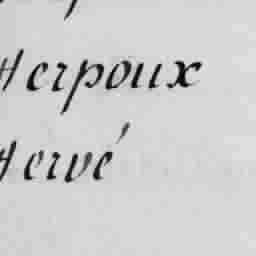 Herpoux
Hervé